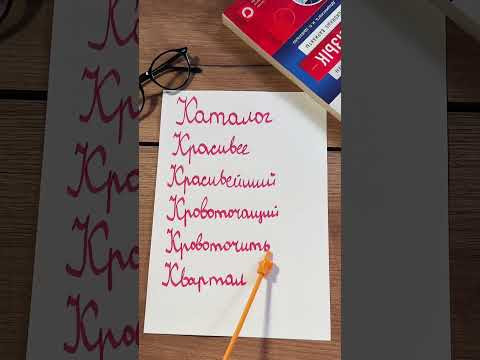 Каталог
Красивее
Красивейший
Кровоточащий
Кровоточить
Квартал